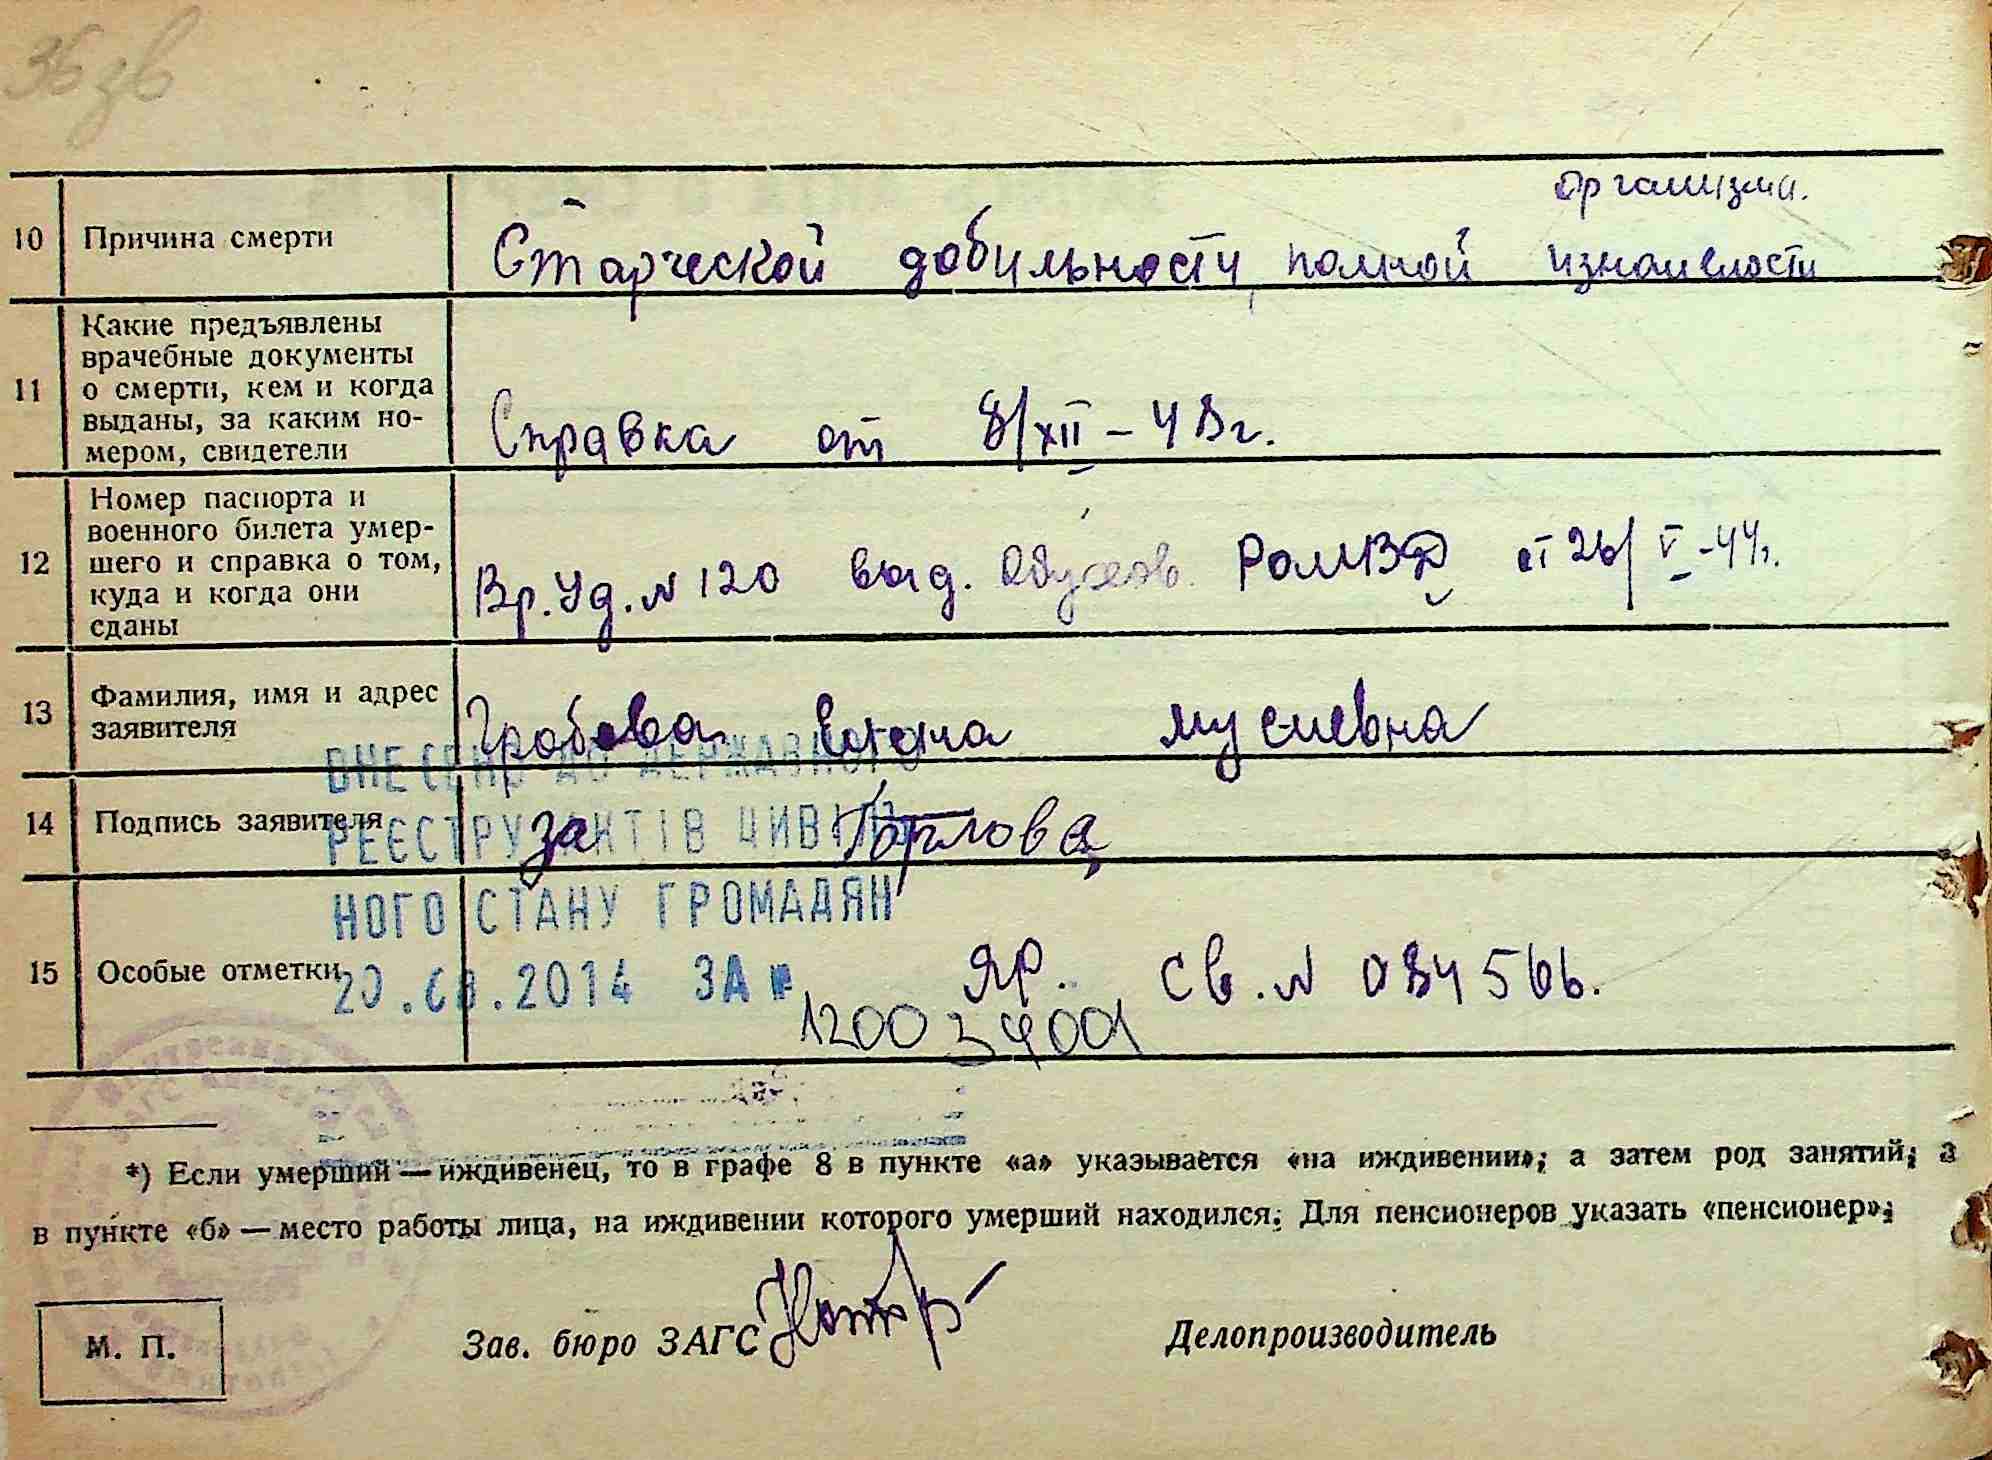 10 Причина смерти
организма.
Старческой добильности, полной изношености
11 Какие предъявлены
врачебные документы
о смерти, кем и когда
выданы, за каким но-
мером, свидетели
Справка от 8/XII – 48г.
12 Номер паспорта и
военного билета умер-
шего и справка о том,
куда и когда они
сданы
Вр. Уд. N 120 выд. РОМВД от 26/V-44г.
13 Фамилия, имя и адрес
заявителя
Гробова
ВНЕСЕНО ДО ДЕРЖАВНОГО
14 Подпись заявителя
за
РЕЄСТРУ АКТІВ ЦИВІЛЬ
НОГО СТАНУ ГРОМАДЯН
15 Особые отметки
.2014 ЗА №
яр. Св. N 084566.
*) Если умерший — иждивенец, то в графе 8 в пункте «а» указывается «на иждивении»; а затем род занятий; а
в пункте «б» — место работы лица, на иждивении которого умерший находился. Для пенсионеров указать «пенсионер»;
М. П.
Зав. бюро ЗАГС
Делопроизводитель